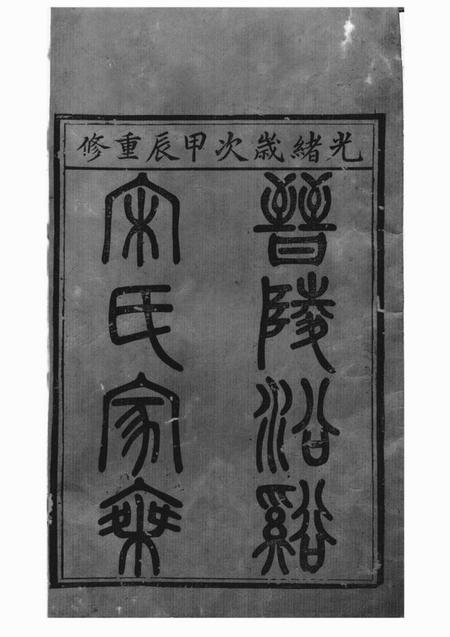 光緒歲次甲辰重修
晉陵沿谿
宋氏家乘